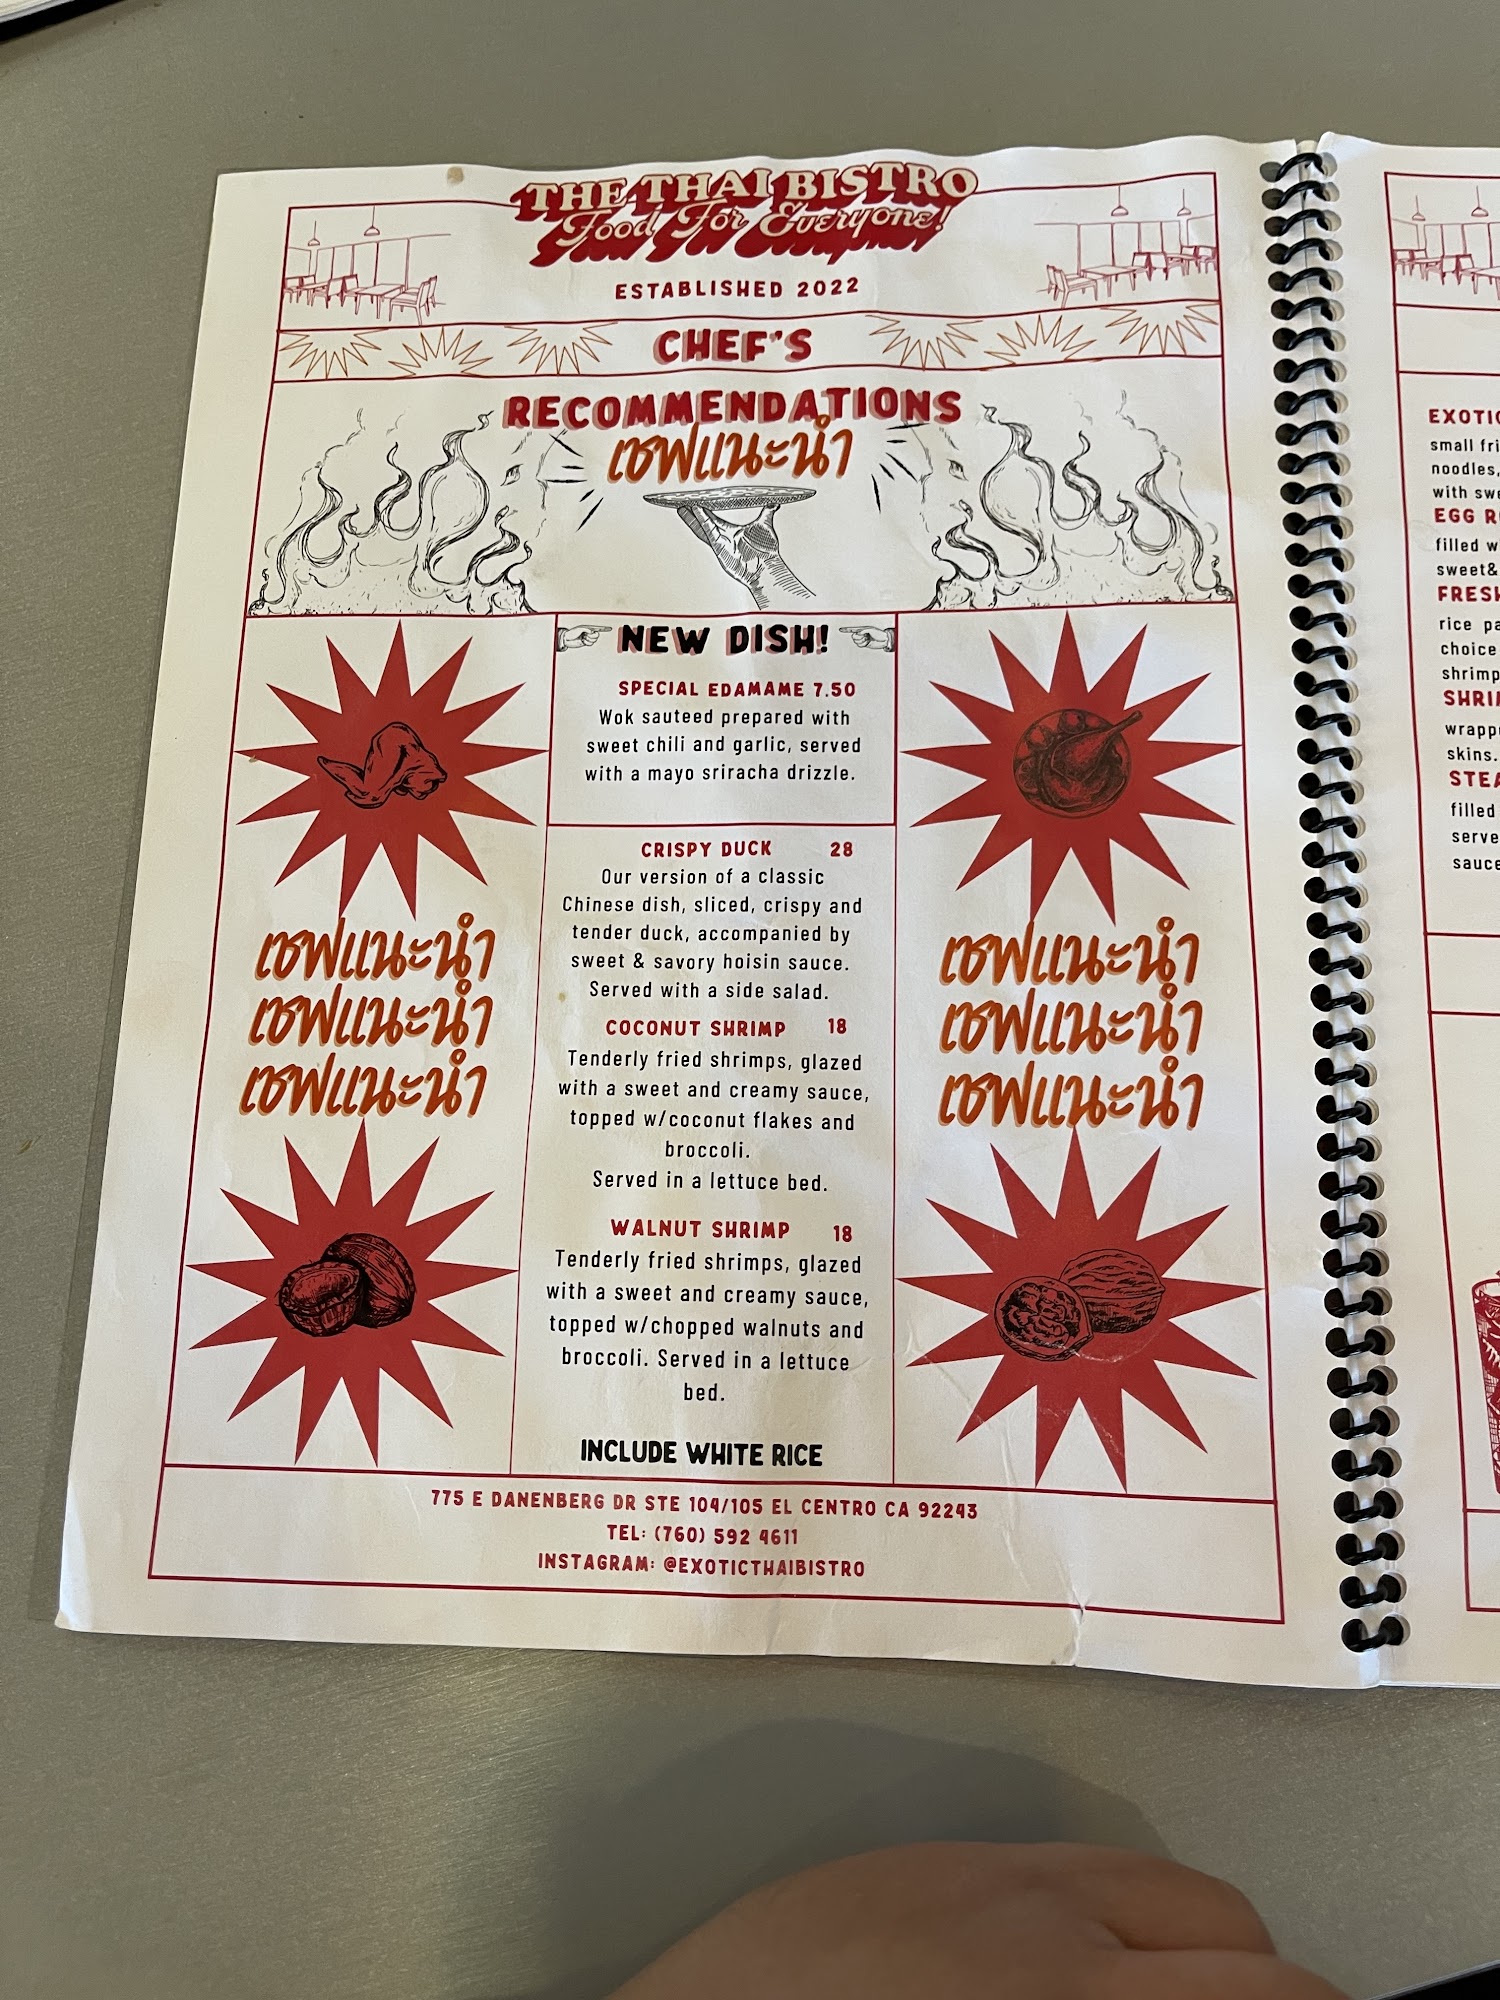 THE THAI BISTRO
Food For Everyone!
ESTABLISHED 2022
CHEF'S
RECOMMENDATIONS
เชฟแนะนำ
NEW DISH!
SPECIAL EDAMAME 7.50
Wok sauteed prepared with
sweet chili and garlic, served
with a mayo sriracha drizzle.
CRISPY DUCK 28
Our version of a classic
Chinese dish, sliced, crispy and
tender duck, accompanied by
sweet & savory hoisin sauce.
Served with a side salad.
COCONUT SHRIMP 18
Tenderly fried shrimps, glazed
with a sweet and creamy sauce,
topped w/coconut flakes and
broccoli.
Served in a lettuce bed.
WALNUT SHRIMP 18
Tenderly fried shrimps, glazed
with a sweet and creamy sauce,
topped w/chopped walnuts and
broccoli. Served in a lettuce
bed.
INCLUDE WHITE RICE
เชฟแนะนำ
เชฟแนะนำ
เชฟแนะนำ
เชฟแนะนำ
เชฟแนะนำ
เชฟแนะนำ
775 E DANENBERG DR STE 104/105 EL CENTRO CA 92243
TEL: (760) 592 4611
INSTAGRAM: @EXOTICTHAIBISTRO
small
noodles,
with
EGG
filled
sweet&
rice
choice
shrimp
skins.
filled
sauce